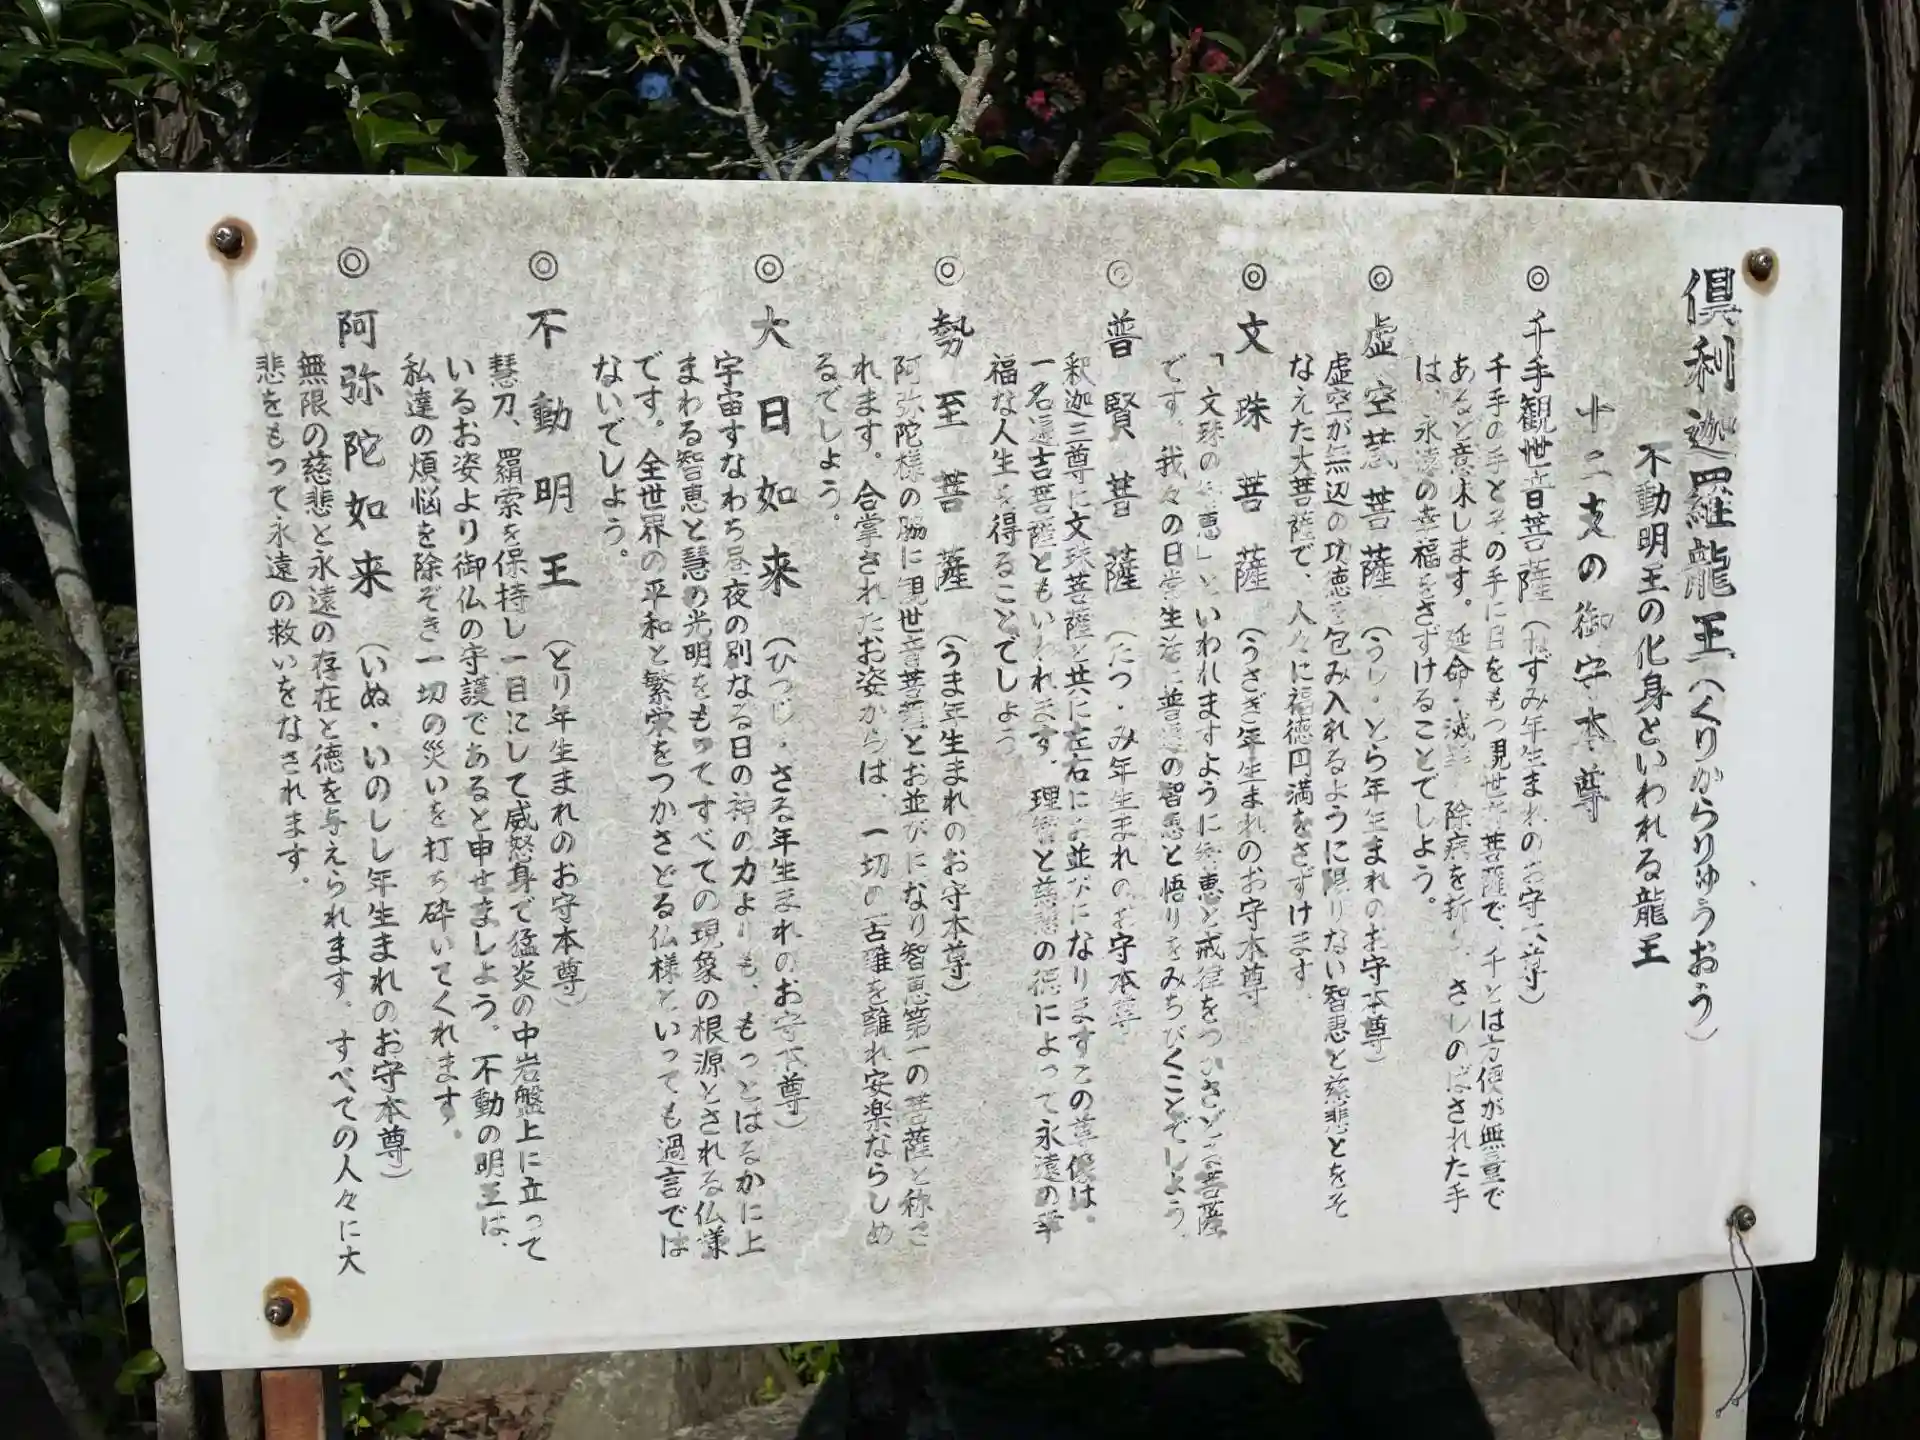 倶利迦羅龍王(くりからりゅうおう)
不動明王の化身といわれる龍王
十二支の御守本尊
◎千手観世音菩薩(ねずみ年生まれのお守本尊)
千手の手とその手に目をもつ観世音菩薩で、千とは方便が無量で
あると意味します。延命・滅罪・除病を祈り、さしのばされた手
は、永遠の幸福をさずけることでしょう。
◎虚空蔵菩薩(うし・とら年生まれのお守本尊)
虚空が無辺の功徳を包み入れるように限りない智恵と慈悲とをそ
なえた大菩薩で、人々に福徳円満をさずけます。
◎文珠菩薩(うさぎ年生まれのお守本尊
「文珠の知恵」といわれますように知恵と戒律をつかさどる菩薩
です。我々の日常生活に普遍の智恵と悟りをみちびくことでしょう。
◎普賢菩薩(たつ・み年生まれのお守本尊
釈迦三尊に文珠菩薩と共に左右にお並びになりますこの尊像は、
一名遍吉菩薩ともいわれます。理智と慈悲の徳によって永遠の幸
福な人生を得ることでしょう
◎勢至菩薩(うま年生まれのお守本尊)
阿弥陀様の脇に観世音菩薩とお並びになり智恵第一の菩薩と称さ
れます。合掌されたお姿からは、一切の苦難を離れ安楽ならしめ
るでしょう。
◎大日如来(ひつじ・さる年生まれのお守本尊)
宇宙すなわち昼夜の別なる日の神の力よりも、もっとはるかに上
まわる智恵と慧の光明をもってすべての現象の根源とされる仏様
です。全世界の平和と繁栄をつかさどる仏様といっても過言では
ないでしょう。
◎不動明王(とり年生まれのお守本尊)
慧刀、羂索を保持し一目にして威怒身で猛炎の中岩盤上に立って
いるお姿より御仏の守護であると申せましょう。不動の明王は、
私達の煩悩を除ぞき一切の災いを打ち砕いてくれます。
◎阿弥陀如来(いぬ・いのしし年生まれのお守本尊)
無限の慈悲と永遠の存在と徳を与えられます。すべての人々に大
悲をもって永遠の救いをなされます。